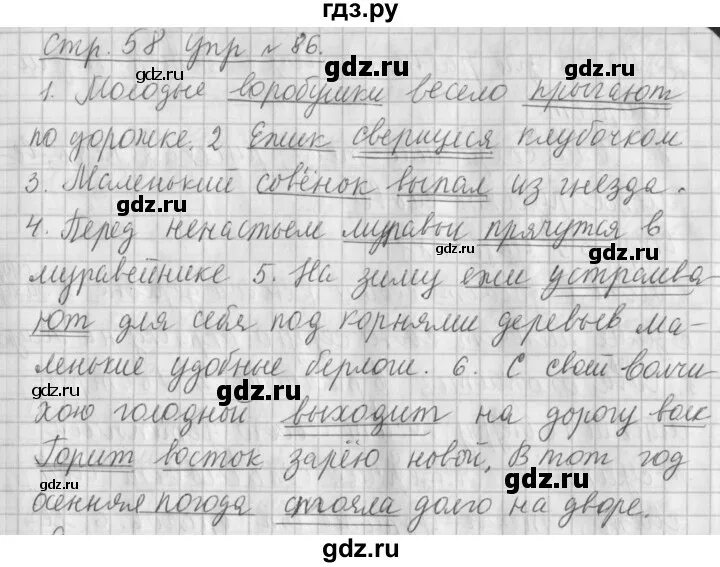 гдз.ру
Стр. 58 упр № 86.
gdz.ru gdz.ru
1. Молодые воробушки весело прыгают
gdz.ru gdz.ru
по дорожке. 2 Ежик свернулся клубочком
3. Маленький совёнок выпал из гнезда.
gdz.ru gdz.ru
4. Перед ненастьем муравьи прячутся в
gdz.ru
муравейнике 5. На зиму ежи устраива
gdz.ru
ют для себя под корнями деревьев ма-
gdz.ru
ленькие удобные берлоги. 6. С своей волчи
gdz.ru gdz.ru
хою голодной выходит на дорогу волк
gdz.ru
Горит восток зарёю новой. В тот год
gdz.ru gdz.ru
осенняя погода стояла долго на дворе.
gdz.ru gdz.ru